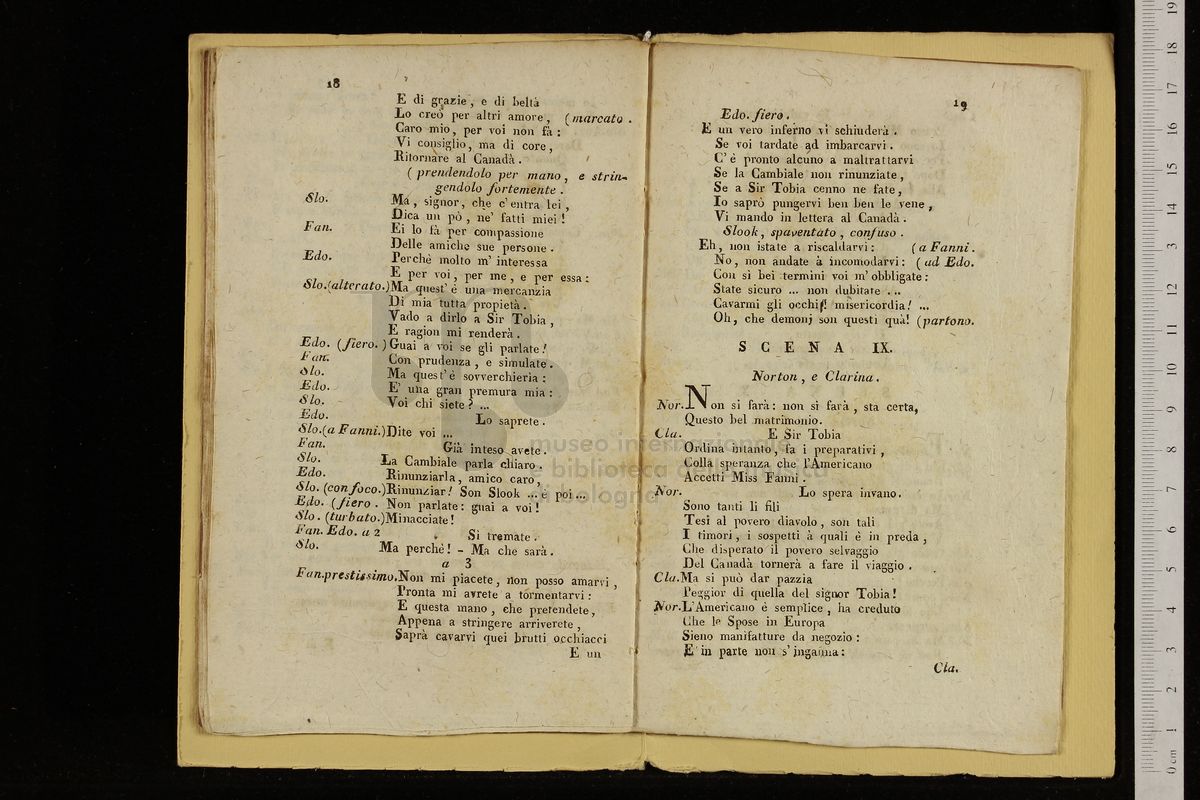 18
E di grazie, e di beltà
Lo creò per altri amore, (marcato.
Caro mio, per voi non fà:
Vi consiglio, ma di core,
Ritornare al Canadà.
(prendendolo per mano, e strin-
gendolo fortemente.
Slo. Ma, signor, che c'entra lei,
Dica un pò, ne' fatti miei!
Fan. Ei lo fà per compassione
Delle amiche sue persone.
Edo. Perchè molto m'interessa
E per voi, per me, e per essa:
Slo.(alterato.)Ma quest'è una mercanzia
Di mia tutta propietà.
Vado a dirlo a Sir Tobia,
E ragion mi renderà.
Edo. (fiero.) Guai a voi se gli parlate!
Fan. Con prudenza, e simulate.
Slo. Ma quest'è sovverchieria:
Edo. E' una gran premura mia:
Slo. Voi chi siete? ...
Edo. Lo saprete.
Slo.(a Fanni.)Dite voi ...
Fan. Già inteso avete.
Slo. La Cambiale parla chiaro.
Edo. Rinunziarla, amico caro,
Slo. (con foco.)Rinunziar! Son Slook ... e poi...
Edo. (fiero. Non parlate: guai a voi!
Slo. (turbato.)Minacciate!
Fan. Edo. a 2 Si tremate.
Slo. Ma perchè! - Ma che sarà.
a 3
Fan.prestissimo.Non mi piacete, non posso amarvi,
Pronta mi avrete a tormentarvi:
E questa mano, che pretendete,
Appena a stringere arriverete,
Saprà cavarvi quei brutti occhiacci
E un
19
Edo. fiero.
E un vero inferno vi schiuderà.
Se voi tardate ad imbarcarvi.
C'è pronto alcuno a maltrattarvi
Se la Cambiale non rinunziate,
Se a Sir Tobia cenno ne fate,
Io saprò pungervi ben ben le vene,
Vi mando in lettera al Canadà.
Slook, spaventato, confuso.
Eh, non istate a riscaldarvi: (a Fanni.
No, non andate à incomodarvi: (ad Edo.
Con sì bei termini voi m'obbligate:
State sicuro ... non dubitate ...
Cavarmi gli occhi! misericordia! ...
Oh, che demonj son questi quà! (partono.
SCENA IX.
Norton, e Clarina.
Nor. Non si farà: non si farà, sta certa,
Questo bel matrimonio.
Cla. E Sir Tobia
Ordina intanto, fa i preparativi,
Colla speranza che l'Americano
Accetti Miss Fanni.
Nor. Lo spera invano.
Sono tanti li fili
Tesi al povero diavolo, son tali
I timori, i sospetti à quali è in preda,
Che disperato il povero selvaggio
Del Canadà tornerà a fare il viaggio.
Cla.Ma si può dar pazzia
Peggior di quella del signor Tobia!
Nor.L'Americano è semplice, ha creduto
Che le Spose in Europa
Sieno manifatture da negozio:
E in parte non s'inganna:
Cla.
museo internazionale
e biblioteca della musica
di bologna
0 cm 1 2 3 4 5 6 7 8 9 10 11 12 13 14 15 16 17 18 19